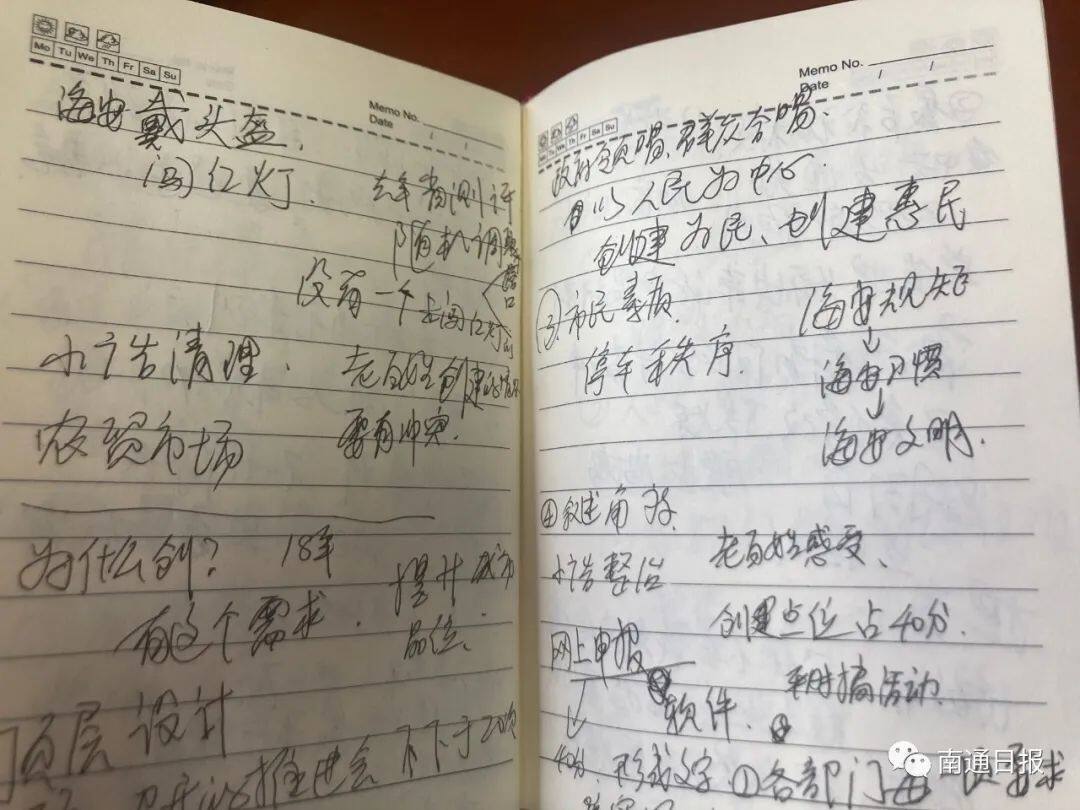 Mo Tu We Th Fr Sa Su
Memo No.
Date
海安戴头盔.
闯红灯. 去年省测评
随机调路口
没有一个上闯红灯的
小广告清理. 老百姓创建的
农贸市场 要有冲突.
为什么创? 18年 提升城市
有这个需求. 品位.
顶层设计
推进会 不下于20次
Memo No.
Date / /
Mo Tu We Th Fr Sa Su
政府领唱、群众合唱.
以人民为中心.
创建为民、创建惠民
③市民素质. 海安规矩
停车秩序. ↓
海安习惯
↓
海安文明.
④叙述角度.
小广告整治 老百姓感受、
创建点位占40分.
网上申报 平时搞活动.
软件.
40分. 形成文字 ①各部门
南通日报